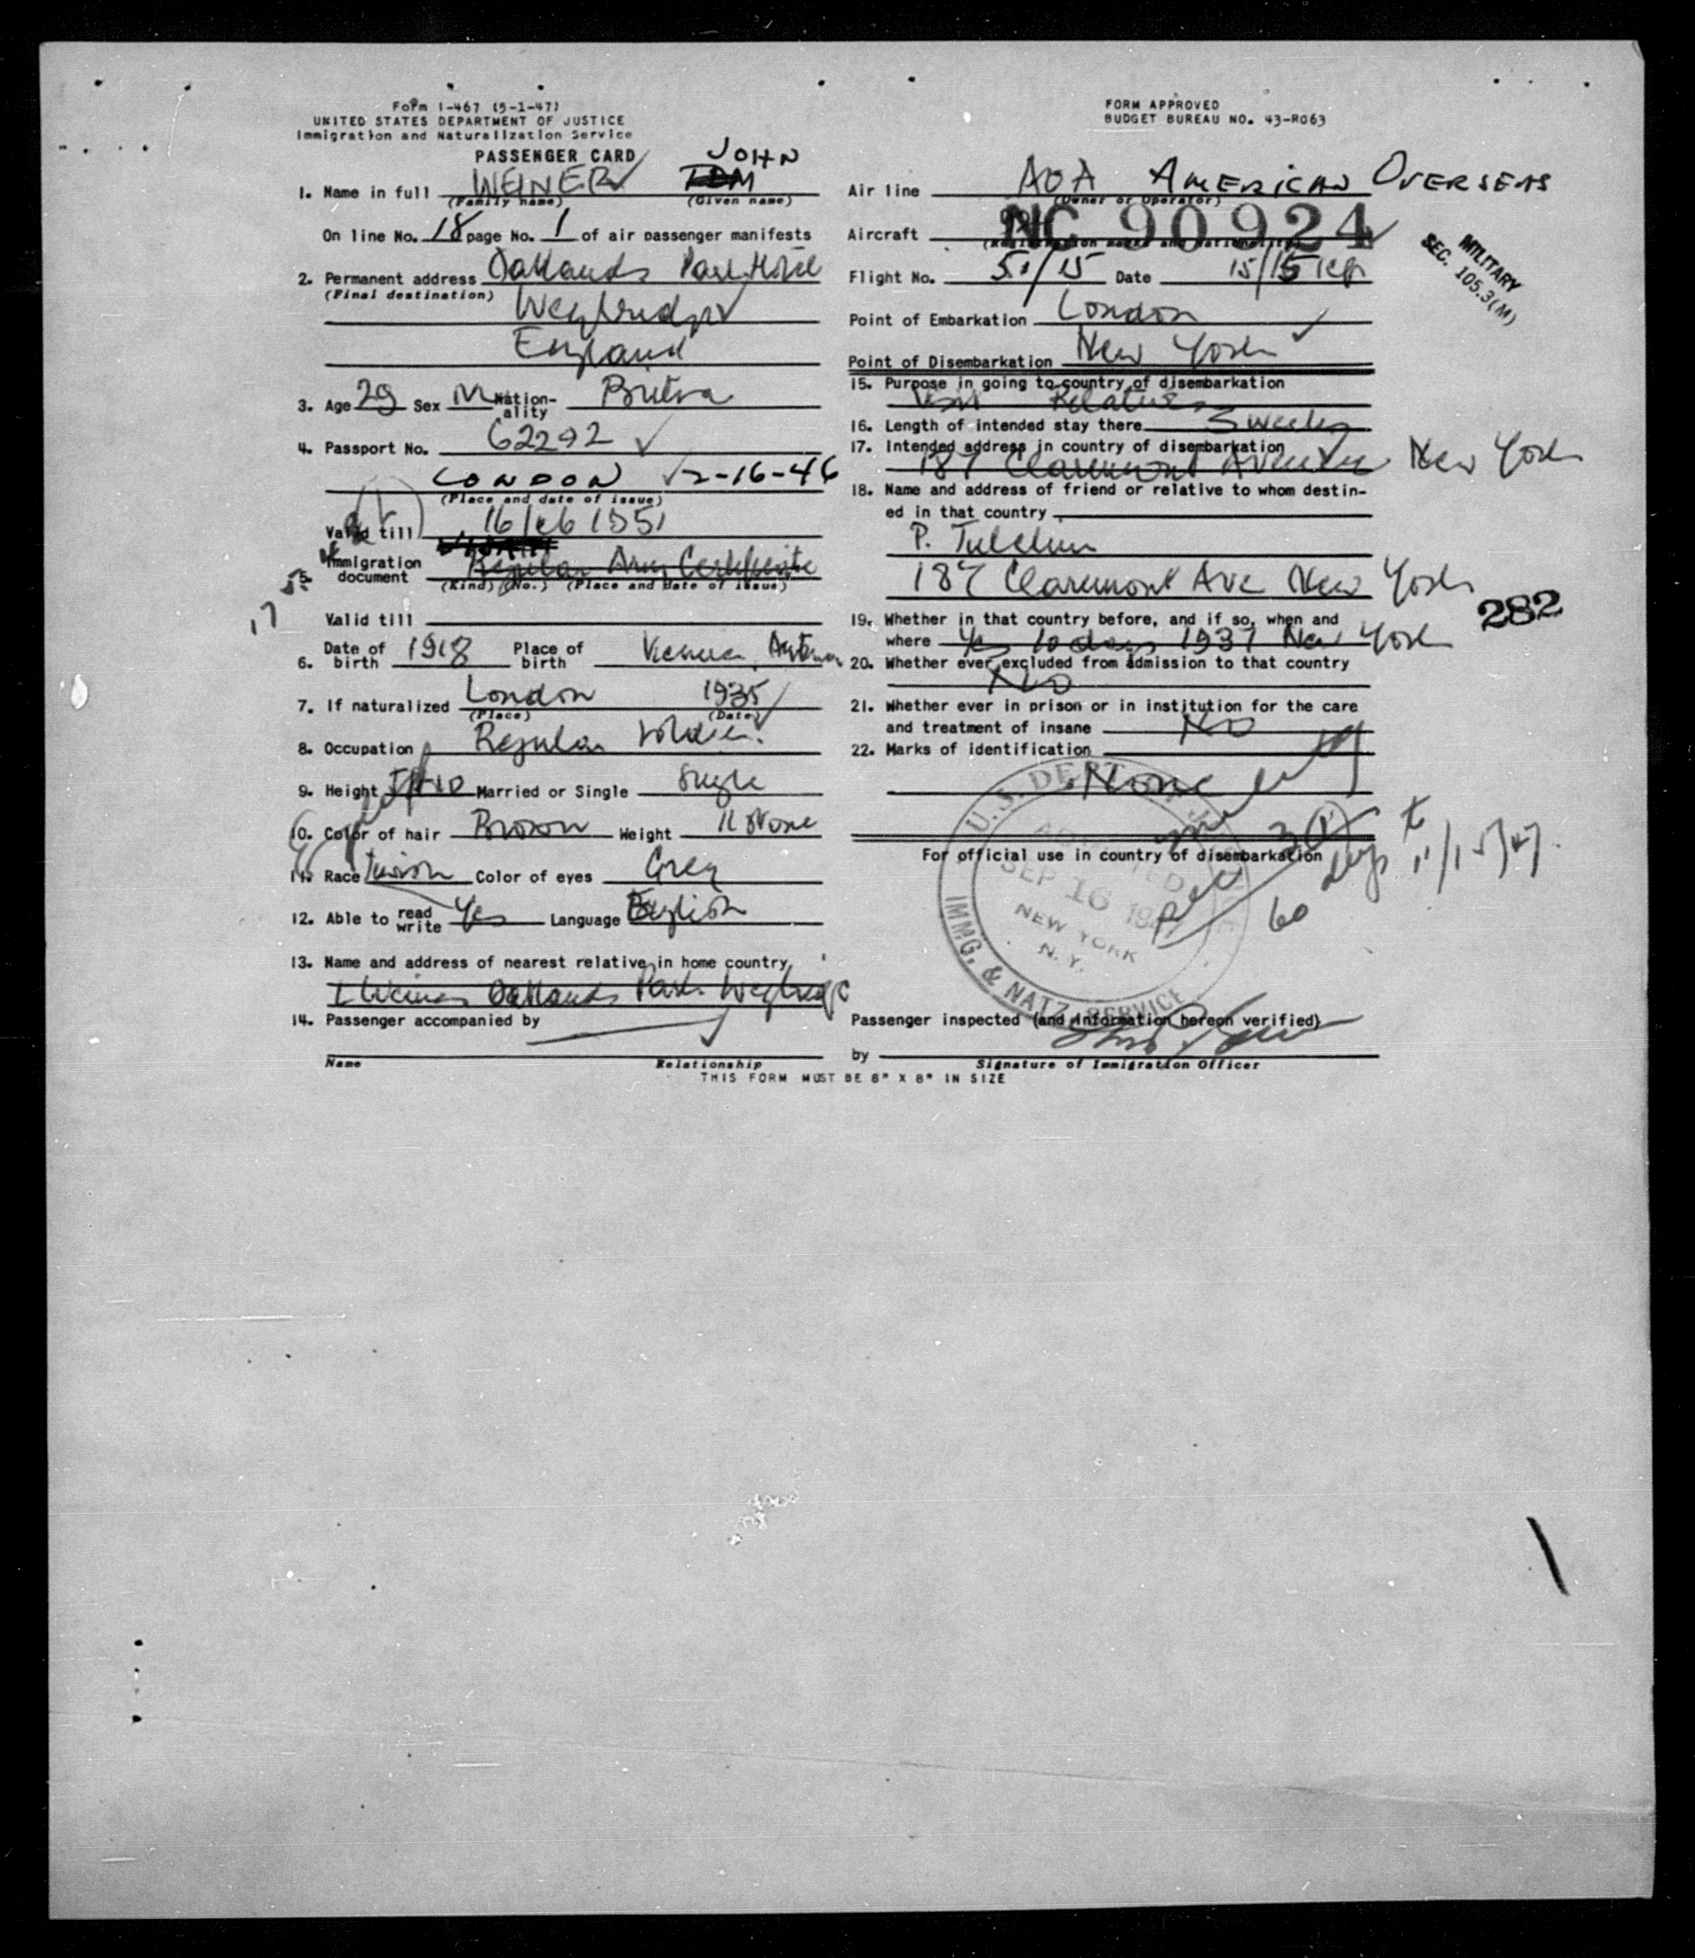 Form I-467 (5-1-47)
UNITED STATES DEPARTMENT OF JUSTICE
Immigration and Naturalization Service
PASSENGER CARD
FORM APPROVED
BUDGET BUREAU NO. 43-R063
JOHN
1. Name in full WEINER TOM
(Family name) (Given name)
On line No. 18 page No. 1 of air passenger manifests
2. Permanent address Oatlands Park Hotel
(Final destination) Weybridge
England
3. Age 29 Sex M Nation-ality British
4. Passport No. 62292
LONDON 2-16-46
(Place and date of issue)
Valid till 16 Feb 1951
5. Immigration document Regular Army Certificate
(Kind) (No.) (Place and Date of Issue)
Valid till
6. Date of birth 1918 Place of birth Vienna, Austria
7. If naturalized London 1935
(Place) (Date)
8. Occupation Regular Soldier
9. Height 5ft 10 Married or Single Single
10. Color of hair Brown Weight 11 Stone
11. Race Color of eyes Grey
12. Able to read write Yes Language English
13. Name and address of nearest relative in home country
Weiner Oatlands Park Weybridge
14. Passenger accompanied by
Name Relationship
Air line AOA AMERICAN OVERSEAS
(Owner or Operator)
Aircraft NC 90924
(Registration marks and nationality)
MILITARY
SEC. 105.3(M)
Flight No. 51/15 Date 15/15 Sep
Point of Embarkation London
Point of Disembarkation New York
15. Purpose in going to country of disembarkation
Visit Relatives
16. Length of intended stay there 3 weeks
17. Intended address in country of disembarkation
187 Claremont Avenue New York
18. Name and address of friend or relative to whom destin-
ed in that country
P. Tulchin
187 Claremont Ave New York
282
19. Whether in that country before, and if so, when and
where Yes 10 days 1937 New York
20. Whether ever excluded from admission to that country
No
21. Whether ever in prison or in institution for the care
and treatment of insane No
22. Marks of identification
None
For official use in country of disembarkation
U.S. DEPT. OF JUSTICE
ADMITTED
SEP 16 1947
NEW YORK
N. Y.
IMMG. & NATZ. SERVICE
60 days to 11/15/47.
Passenger inspected (and information hereon verified)
by
Signature of Immigration Officer
THIS FORM MUST BE 8" X 8" IN SIZE